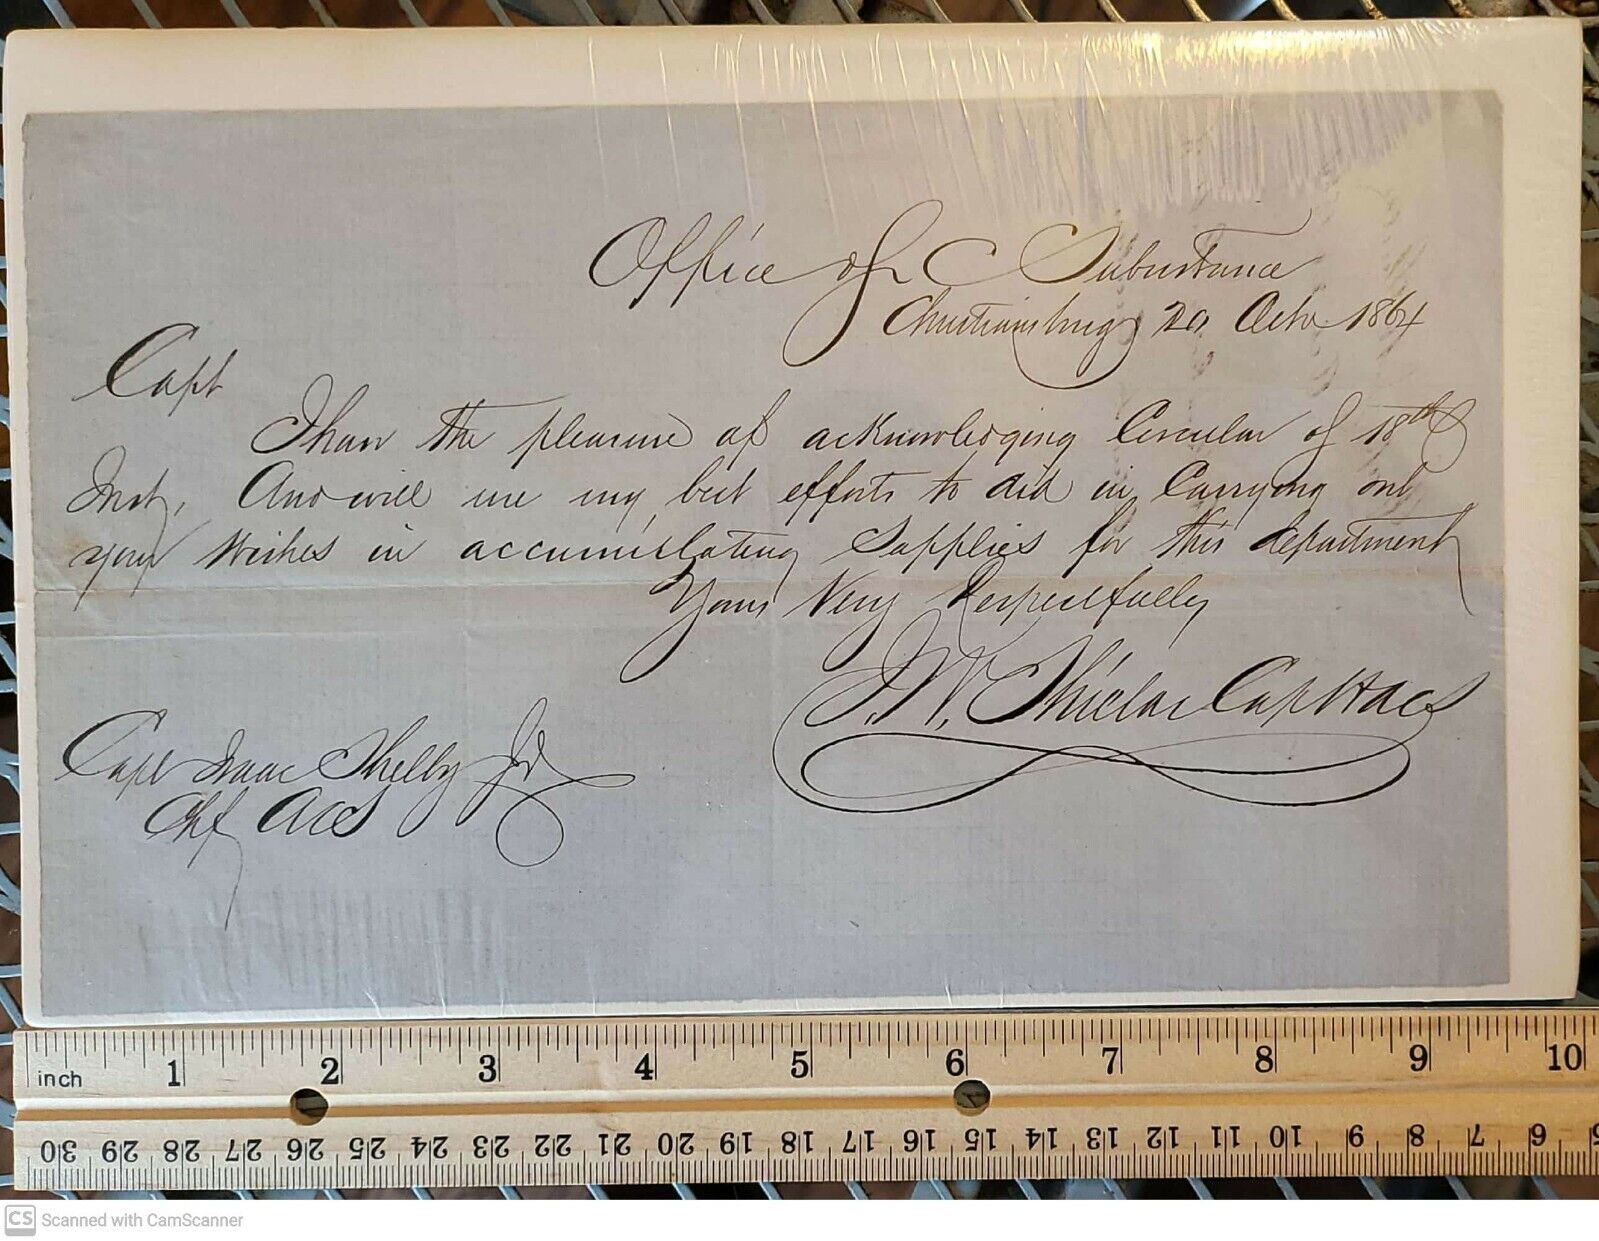 Office of C Subsistence
Christiansburg 20 Octo 1864
Capt
I have the pleasure of acknowledging Circular of 18th
Inst, And will use my best efforts to aid in Carrying out
your Wishes in accumulating Supplies for this department
Yours Very Respectfully
J. W. Shields Capt & ACS
Capt Isaac Shelby Jr
Chf ACS
inch 1 2 3 4 5 6 7 8 9 10
30 29 28 27 26 25 24 23 22 21 20 19 18 17 16 15 14 13 12 11 10 9 8 7 6 5
CS Scanned with CamScanner